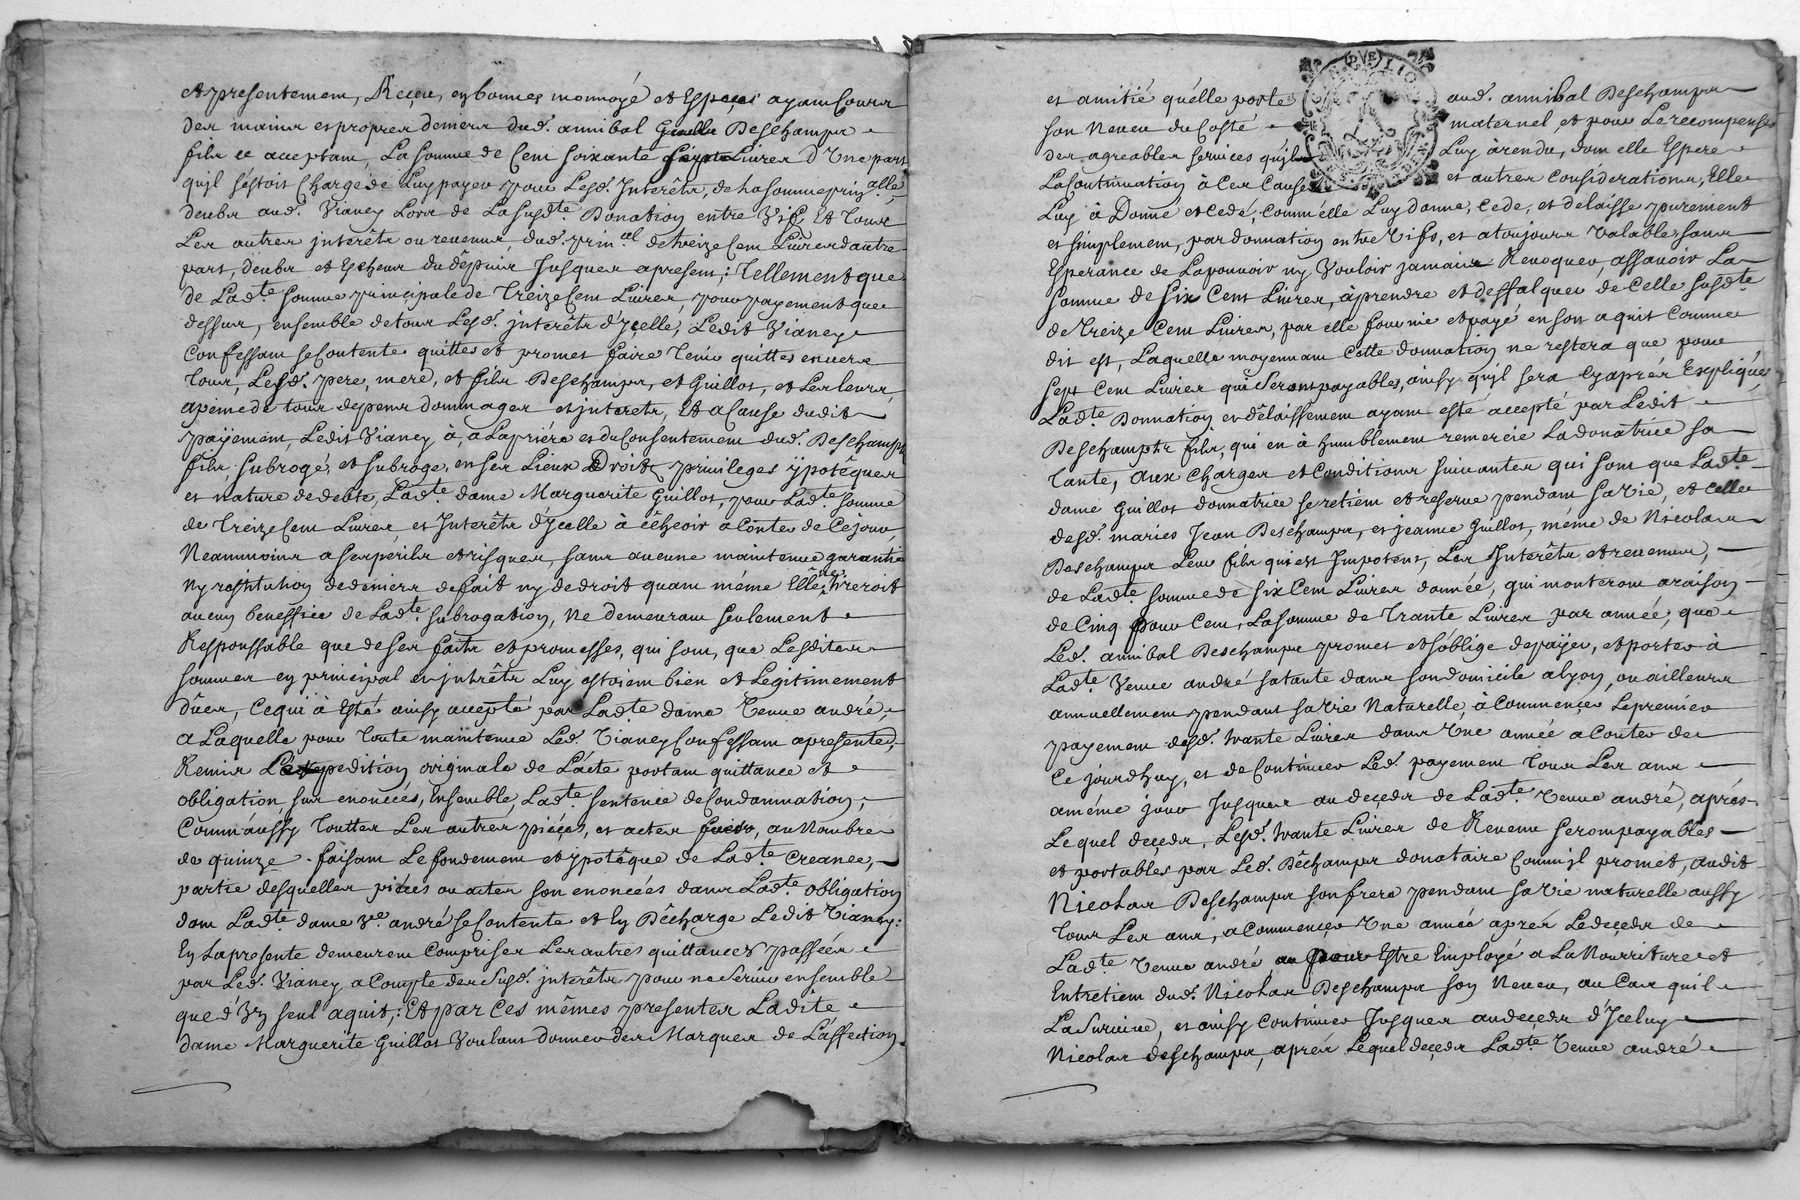 et presentement, Receu, en bonnes monnoyé et Especes ayant Cours
des mains et propres deniers dud. annibal Guillot Deschamps
fils ce acceptant La somme de Cent soixante Livres D'Une part
quil s'estoit Chargé de Luy payer pour Lesd. Interêts, de la somme prin.alle
deubs aud. Vianey Lors de La susd.te Donation entre Vifs, Et Tous
Les autres interêts ou revenus, dud. prin.cal de treize Cent Livres d'autre
part, deubs et Echeus du depuis Jusques apresent; Tellement que
de Lad.te somme principale de Treize Cent Livres, pour payement que
dessus, ensemble de tous Lesd. interêts d'ycelle, Ledit Vianey
Confessant se Contente quittes et promet faire tenir quittes envers
Tous, Lesd. pere, mere, et fils Deschamps, et Guillot, et Les leurs,
apeine de tous depens dommages et interets, Et a Cause dudit
payement, Ledit Vianey à, a La priére et du Consentement dud. Deschamps
fils, subrogé, et subroge, en ses Lieux Droits privileges ypotêques
et nature de debte, Lad.te dame Marguerite Guillot, pour Lad.te somme
de Treize Cent Livres, et Interêts d'ycelle à échoir a Conter de Cejour,
Neammoins a ses perils et risques, sans aucune maintenue garantie
ny restitution de deniers de fait ny de droit quant même Elle ne tireroit
aucun beneffice de Lad.te subrogation, Ne demeurant seulement
Responssable que de ses faits et promesses, qui sont, que Lesdites
sommes en principal et interêts Luy estoient bien et Legitimement
dûes, Ce qui à Esté ainsy accepté par Lad.te dame Veuve andré,
a Laquelle pour toute maintenue Led. Vianey Confessant apresente,
Remis L'expedition originale de L'acte portant quittance et
obligation sus enoncées, Ensemble Lad.te sentence de Condamnation,
Comm'aussy Touttes Les autres piéces, et actes, au Nombre
de quinze faisant Le fondement et ypotêque de Lad.te Creance,
partie desquelles piéces ou actes son enoncées dans Lad.te obligation
dont Lad.te dame v.ve andré se Contente et En Décharge Ledit Vianey:
En La presente demeurent Comprises Les autres quittances passées
par Led. Vianey a Compte des susd. interêts pour ne servir ensemble
que d'Un seul aquit; Et par Ces mêmes presentes Ladite
dame Marguerite Guillot Voulant donner des Marques de L'affection
et amitié qu'elle porte aud. annibal Deschamps
son Neveu du Costé maternel, et pour Le recompenser
des agreables services qu'il Luy à rendu, dont elle Espere
La Continuation à Ces Causes et autres Considerations, Elle
Luy à Donné et Cedé, Comm'elle Luy donne, Cede, et delaisse purement
et simplement, par donnation entre Vifs, et a toujours Valable sans
Esperance de La pouvoir ny Vouloir jamais Revoquer, assavoir La
somme de Six Cent Livres, à prendre et deffalquer de Celle susd.te
de Treize Cent Livres, par elle fournie et payé en son aquit Comme
dit est, Laquelle moyennant Cette donnation ne restera que pour
Sept Cent Livres qui Seront payables, ainsy qu'il sera Cy aprés Expliqué,
Lad.te Donnation et délaissement ayant esté accepté par Ledit
Deschamps fils, qui en à humblement remercie La donatrice sa
Tante, Aux Charges et Conditions suivantes qui sont que Lad.te
dame Guillot donnatrice se retient et reserve pendant sa Vie, et Celle
desd. mariés Jean Deschamps, et jeanne Guillot, même de Nicolas
Deschamps Leur fils qui est Impotent, Les Interêts et revenus,
de Lad.te somme de Six Cent Livres donnée, qui monteront a raison
de Cinq pour Cent, La somme de Trante Livres par année, que
Led. annibal Deschamps promet et s'oblige de payer, et porter à
Lad.te Veuve andré sa tante dans son domicile a Lyon, ou ailleurs
annuellement pendant sa Vie Naturelle, à Commencer Le premier
payement desd. trante Livres dans Une année a Conter de
Ce jourdhuy, et de Continuer Led. payement Tous Les ans
a même jour Jusques au deçeds de Lad.te Veuve andré, aprés
Lequel deçeds, Lesd. trante Livres de Revenu seront payables
et portables par Led. Déchamps donataire Comm'il promet, audit
Nicolas Deschamps son frere pendant sa Vie naturelle aussy
Tous Les ans, a Commencer Une année aprés Le deçeds de
Lad.te Veuve andré pour Estre Employé a La Nourriture et
Entretient dud. Nicolas Deschamps son Neveu, au Cas qu'il
La survive, et ainsy Continuer Jusques au deçeds d'Iceluy
Nicolas deschamps, aprés Lequel deçeds Lad.te Veuve andré